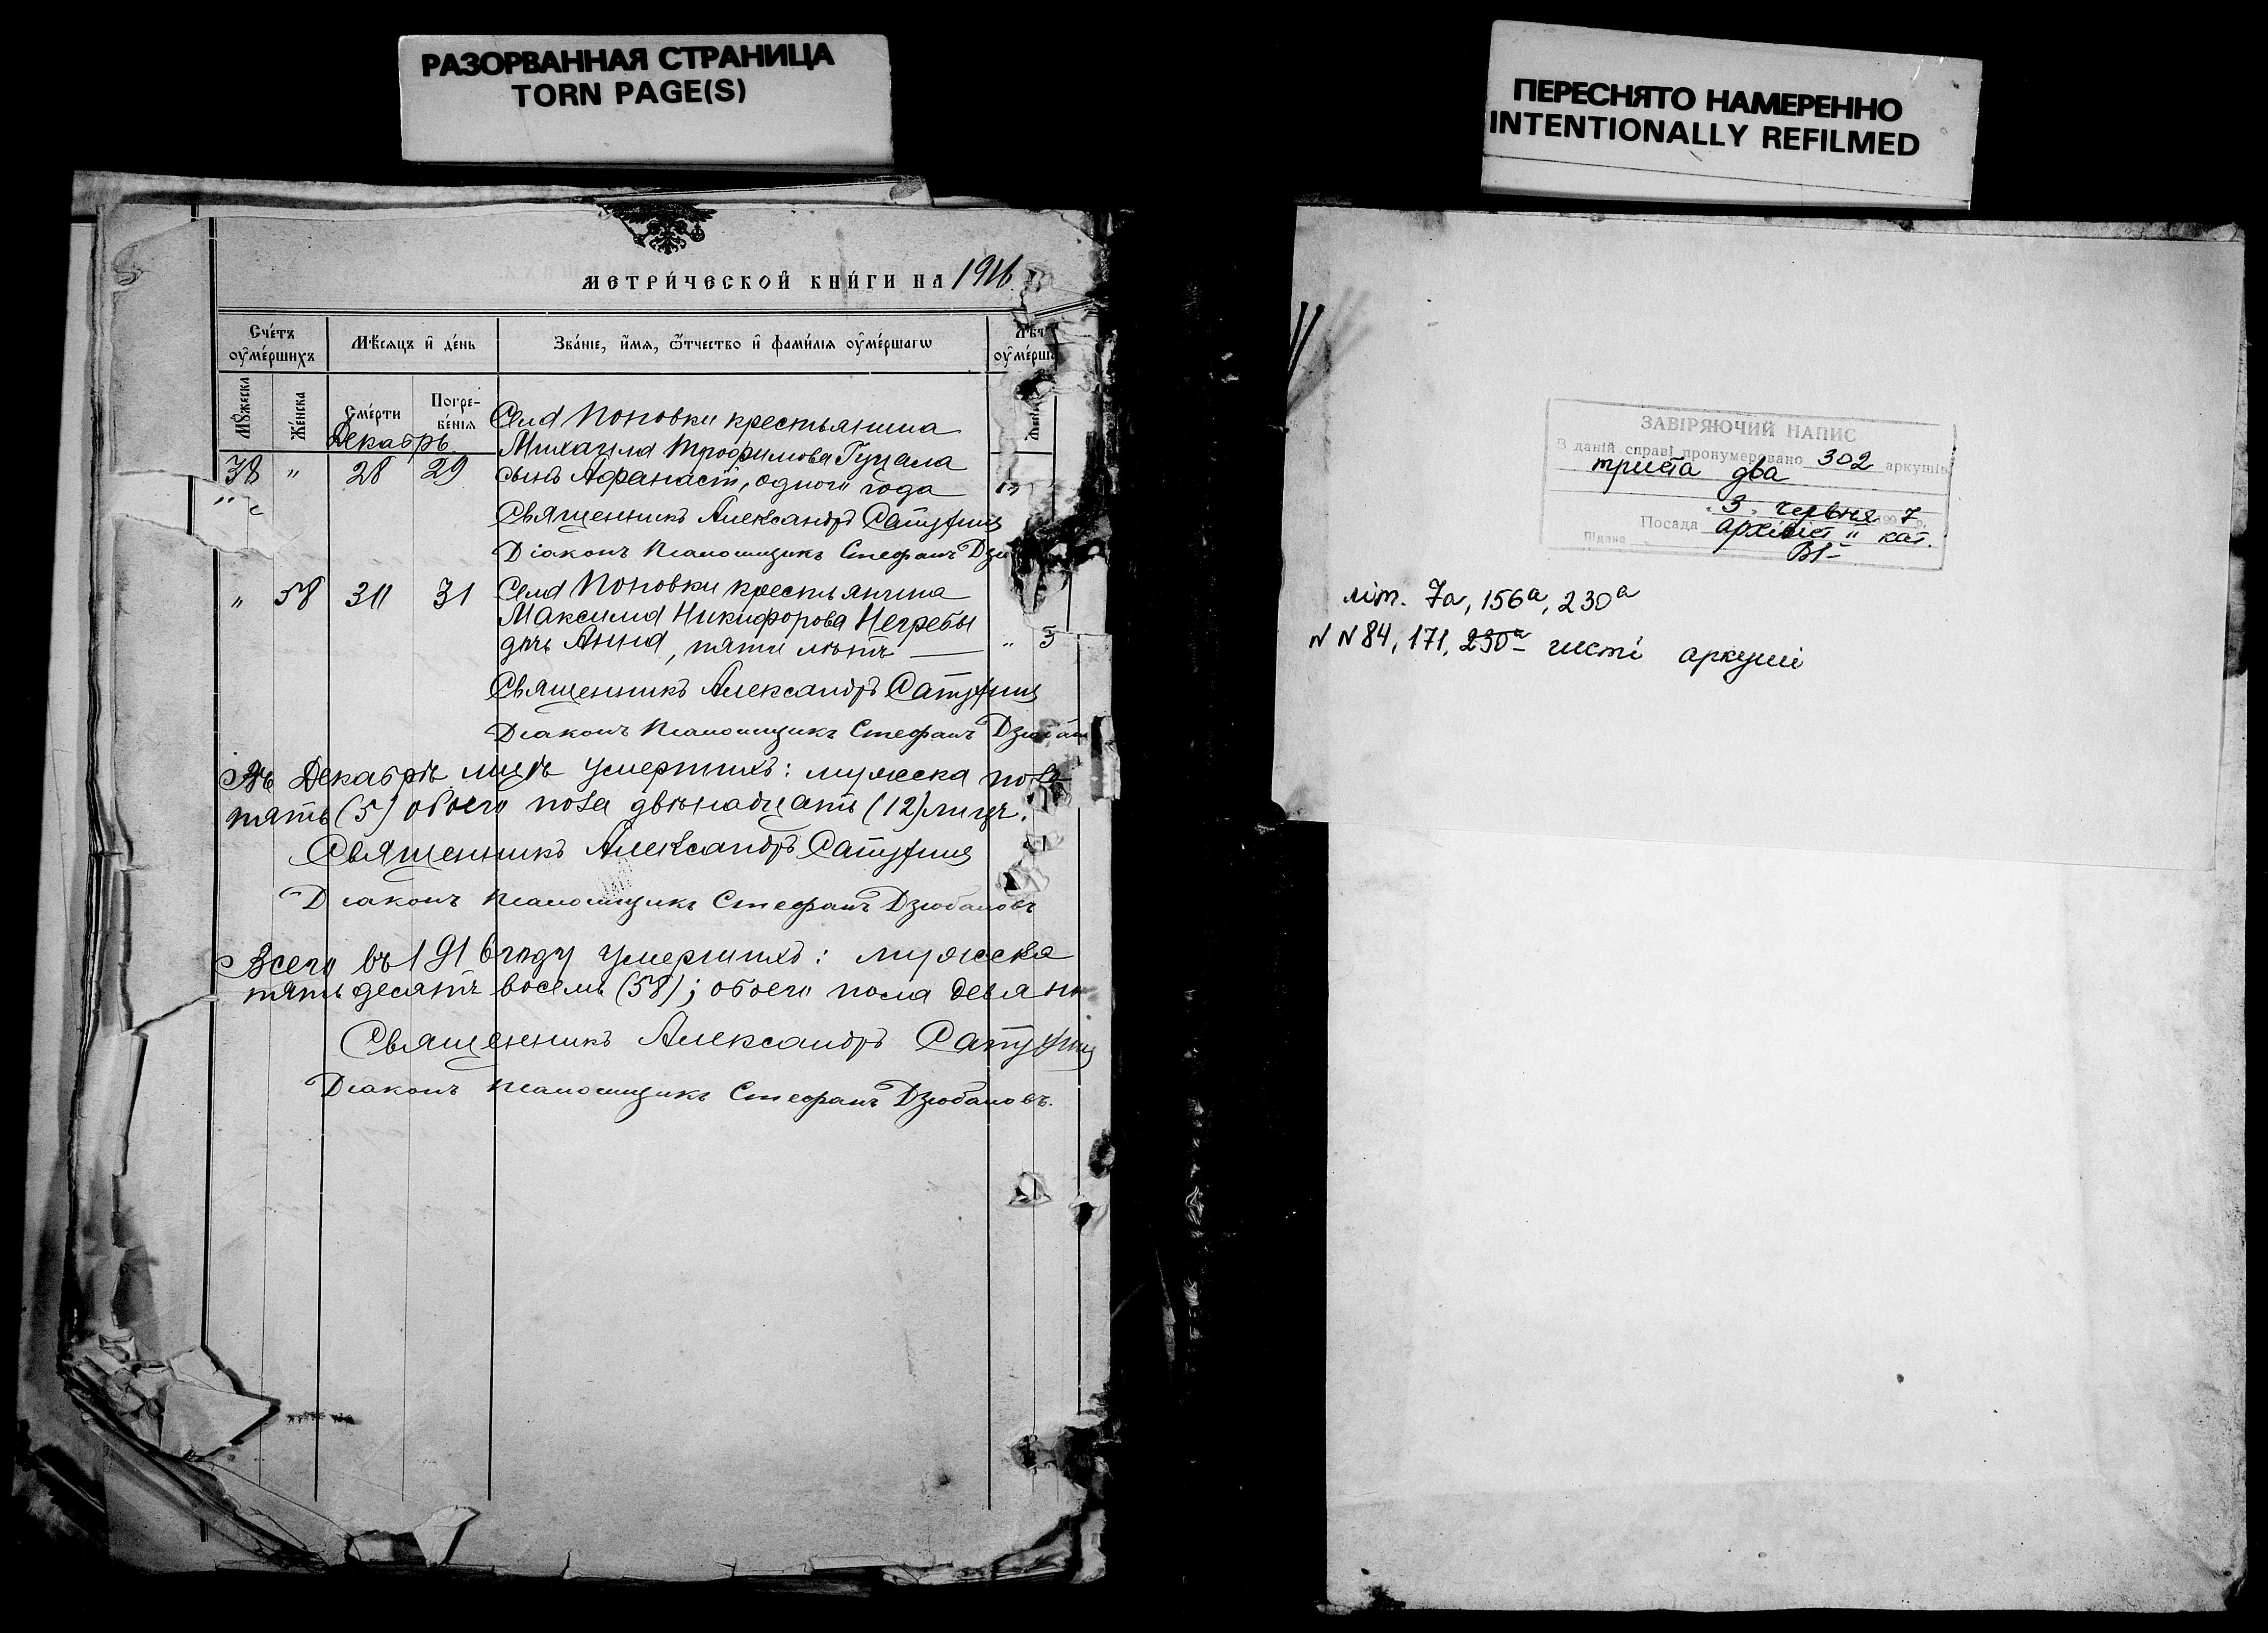 РАЗОРВАННАЯ СТРАНИЦА
TORN PAGE(S)
ПЕРЕСНЯТО НАМЕРЕННО
INTENTIONALLY REFILMED
МЕТРИ́ЧЕСКОЙ КНИ́ГИ НА 1916
Сче́тъ оу҆ме́ршихъ
Мѣ́сяцъ и҆ де́нь
Зва́нїе, и҆́мя, ѻ҆́тчество и҆ фами́лїя оу҆ме́ршагѡ
Лѣт
оу҆ме́рш
Мꙋжеска
Же́нска
Сме́рти
Погребе́нїя
Декабрь.
Села Поповки крестьянина
Михаила Трофимова Гуцала
38 " 28 29 сынъ Афанасій, одного года
Священникъ Александръ
Діаконъ псаломщикъ Стефанъ
" 58 30 31 Села Поповки крестьянина
Максима Никифорова Негребы
дочь Анна, пяти лѣтъ — " 5
Священникъ Александръ
Діаконъ псаломщикъ Стефанъ
Въ Декабрѣ мцѣ умершихъ: мужеска пола
пять (5) обоего пола двѣнадцать (12) лицъ.
Священникъ Александръ
Діаконъ псаломщикъ Стефанъ Дзюбановъ
Всего въ 1916 году умершихъ: мужеска
пятьдесятъ восемь (58); обоего пола
Священникъ Александръ
Діаконъ псаломщикъ Стефанъ Дзюбановъ.
ЗАВІРЯЮЧИЙ НАПИС
В даній справі пронумеровано 302 аркушів
триста два
"3" червня 1997 р.
Посада архівіст II кат.
Підпис
літ. 7а, 156а, 230а
NN 84, 171, 230а – чисті аркуші